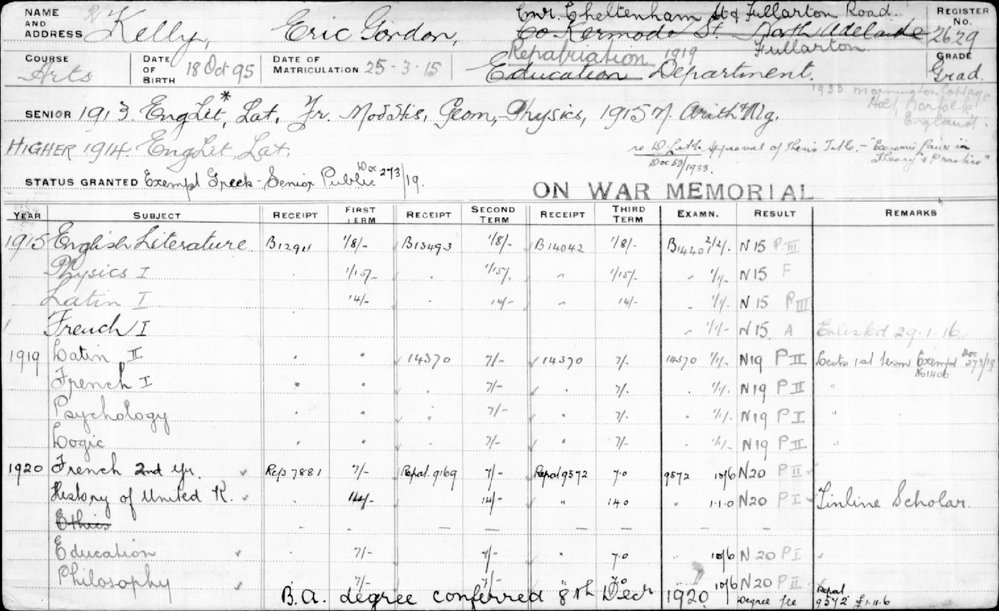 NAME AND ADDRESS Kelly, Eric Gordon, Cnr. Cheltenham St & Fullarton Road. REGISTER NO. 2629
Co Kermode St. North Adelaide Fullarton
COURSE Arts DATE OF BIRTH 18 Oct 95 DATE OF MATRICULATION 25-3-15 Repatriation 1919 Education Department. GRADE Grad.
1933 Cottage
SENIOR 1913. Eng Lit*, Lat, Fr. Geom, Physics, 1915 Arith & Alg. Norfolk England.
HIGHER 1914. Eng Lit, Lat.
re D. Litt. Approval of Thesis Title - "Economic Laws in
Doc 53/1933. Theory & Practice"
STATUS GRANTED Exempt Greek - Senior Public Doc 273/19.
ON WAR MEMORIAL
YEAR SUBJECT RECEIPT FIRST TERM RECEIPT SECOND TERM RECEIPT THIRD TERM EXAMN. RESULT REMARKS
1915 English Literature B12911 1/8/- B13493 1/8/- B14042 1/8/- B14407 2/2/- N15 P III
Physics I 1/15/- " 1/15/- " 1/15/- " 1/1/- N15 F
Latin I 14/- " 14/- " 14/- " 1/1/- N15 P III
French I " 1/1/- N15 A Enlisted 29.1.16
1919 Latin II " " 14370 7/- 14370 7/- 14370 1/1/- N19 P II Lects 1st term Exempt Doc 273/19
French I " " " 7/- " 7/- " 1/1/- N19 P II "
Psychology " " " 7/- " 7/- " 1/1/- N19 P I "
Logic " " " 7/- " 7/- " 1/1/- N19 P II "
1920 French 2nd Yr. Rep 7881 7/- Repat. 9169 7/- Repat 9572 7.0 9572 10/6 N20 P II
History of United K. " 14/- " 14/- " 14.0 " 1.1.0 N20 P I Tinline Scholar.
Ethics - - - - - - - -
Education 7/- 7/- " 7.0 " 10/6 N20 P I
Philosophy 7/- 7/- 7.0 10/6 N20 P II
B.A. degree conferred 8th Decr 1920 Degree fee Repat 9572 £1.11.6